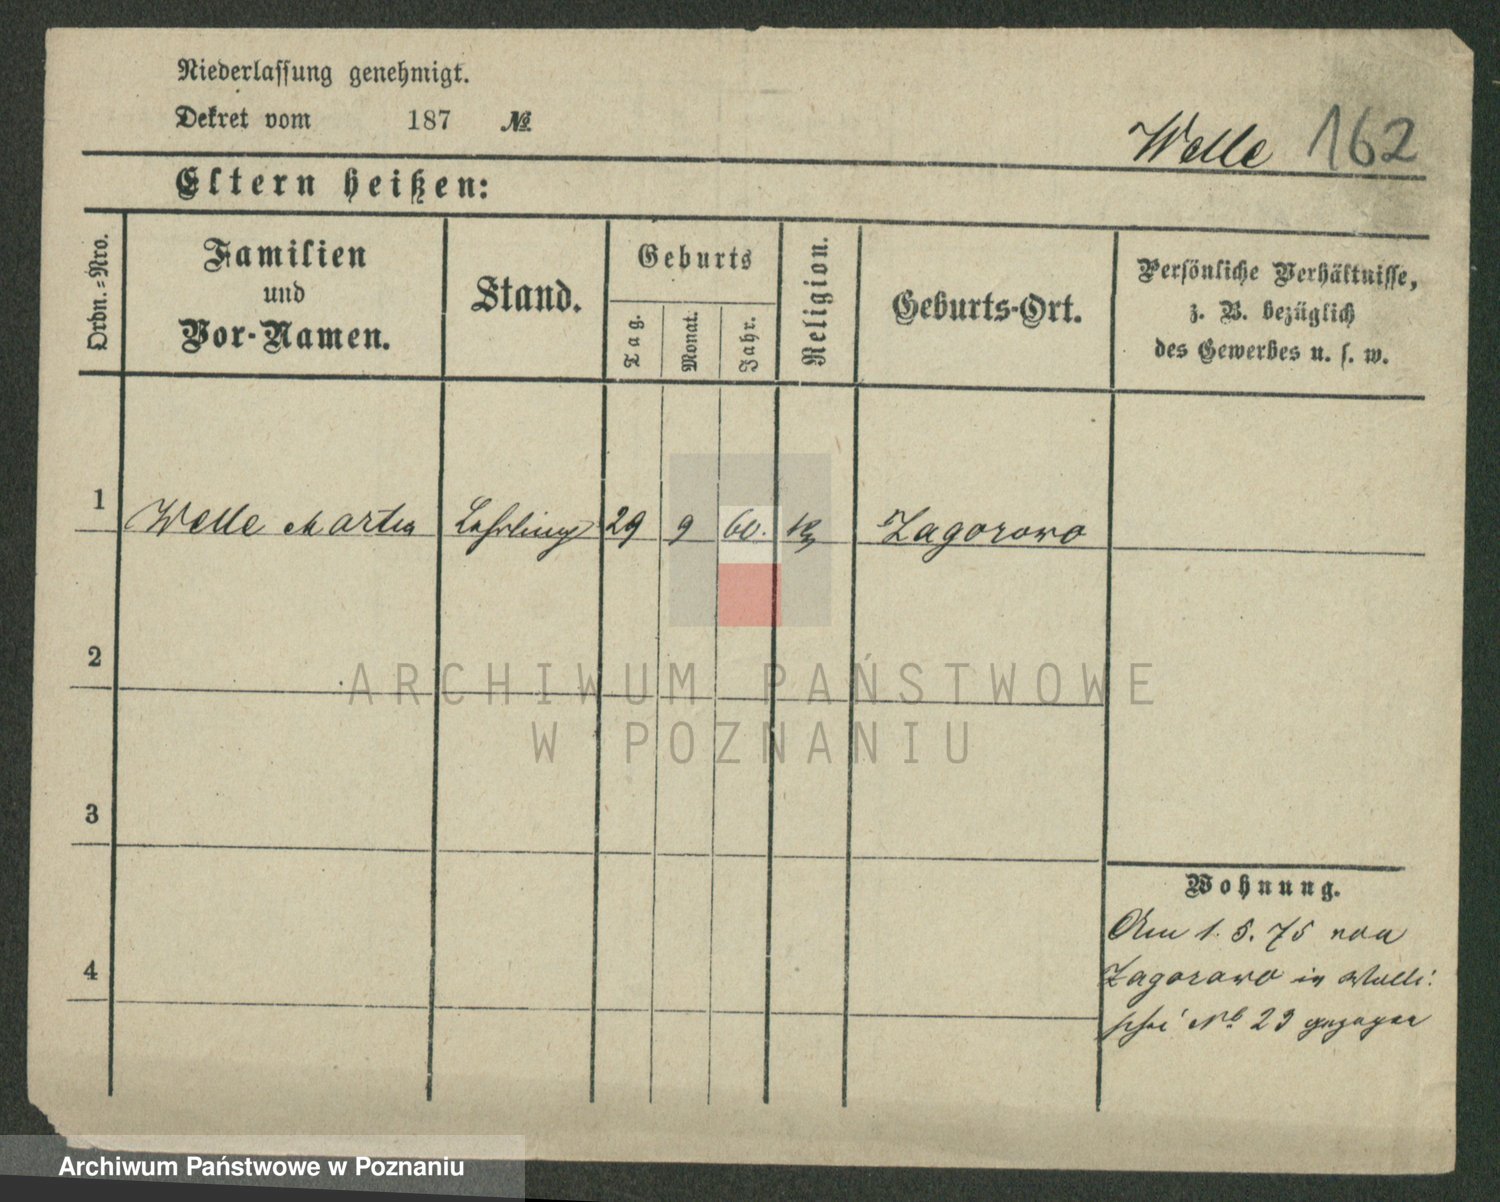 Niederlassung genehmigt.
Dekret vom 187 №
Welle 162
Eltern heißen:
Ordn.-Nro.
Familien
und
Vor-Namen.
Stand.
Geburts
Tag.
Monat.
Jahr.
Religion.
Geburts-Ort.
Persönliche Verhältnisse,
z. B. bezüglich
des Gewerbes u. s. w.
1 Welle Martin Lehrling 29 9 60. Zagorowo
2
3
4
Wohnung.
Am 1. 5. 75 von
Zagorowo in
No 23 gezogen
ARCHIWUM PAŃSTWOWE
W POZNANIU
Archiwum Państwowe w Poznaniu